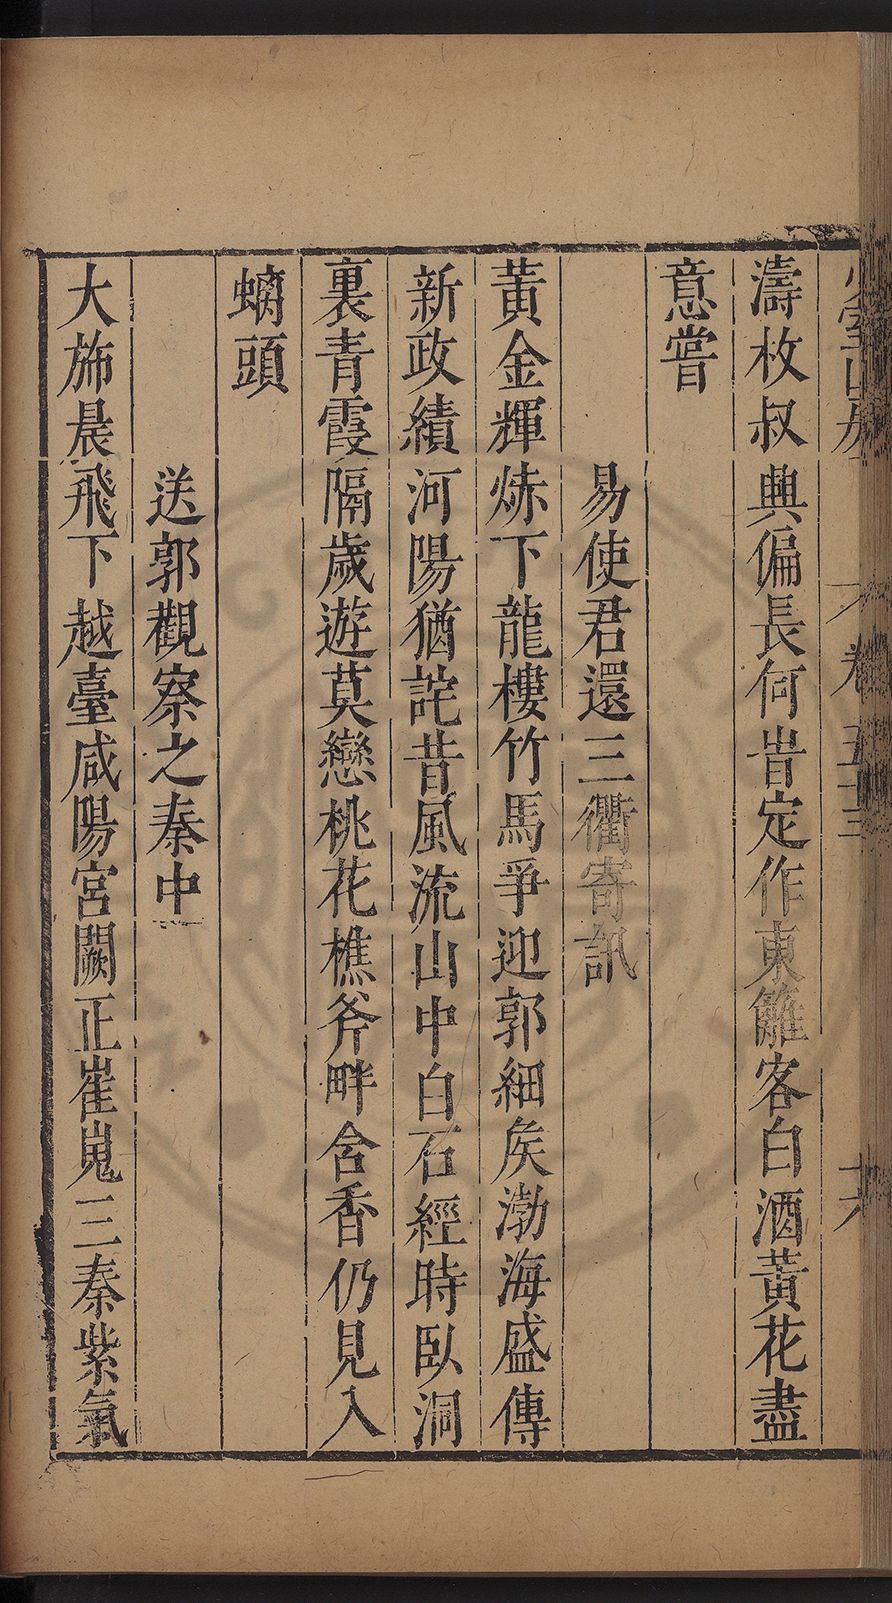 濤枚叔興偏長何旹定作東籬客白酒黃花盡
意嘗
易使君還三衢寄訊
黃金輝煠下龍樓竹馬爭迎郭細矦渤海盛傳
新政績河陽猶詫昔風流山中白石經時臥洞
裏青霞隔歲遊莫戀桃花樵斧畔含香仍見入
螭頭
送郭觀察之秦中
大斾晨飛下越臺咸陽宮闕正崔嵬三秦紫氣